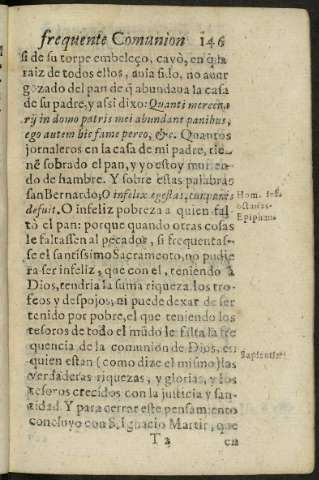 frequente Comunion 146
si de su torpe embeleço, cayò, en q̃ la
raiz de todos ellos, auia sido, no auer
gozado del pan de q̃ abundaua la casa
de su padre, y assi dixo: Quanti mercena
rij in domo patris mei abundant panibus,
ego autem hic fame pereo, &c. Quantos
jornaleros en la casa de mi padre, tie-
nẽ sobrado el pan, y yo estoy murien-
do de hambre. Y sobre estas palabras
san Bernardo; O infelix egestas, cui panis
defuit. O infeliz pobreza a quien fal-
tò el pan: porque quando otras cosas
le faltassen al pecador, si frequentas-
se el santissimo Sacramento, no pudie
ra ser infeliz, que con el, teniendo à
Dios, tendria la suma riqueza. los tro-
feos y despojos, ni puede dexar de ser
tenido por pobre, el que teniendo los
tesoros de todo el mũdo le falta la fre
quencia de la comunion de Dios, en
quien estan (como dize el mismo) las
verdaderas riquezas, y glorias, y los
tesoros crecidos con la justicia y san-
tidad. Y para cerrar este pensamiento
concluyo con S. Ignacio Martir, que
T 2 cla
Hom.
octauas
Epiphan.
Sapientiæ